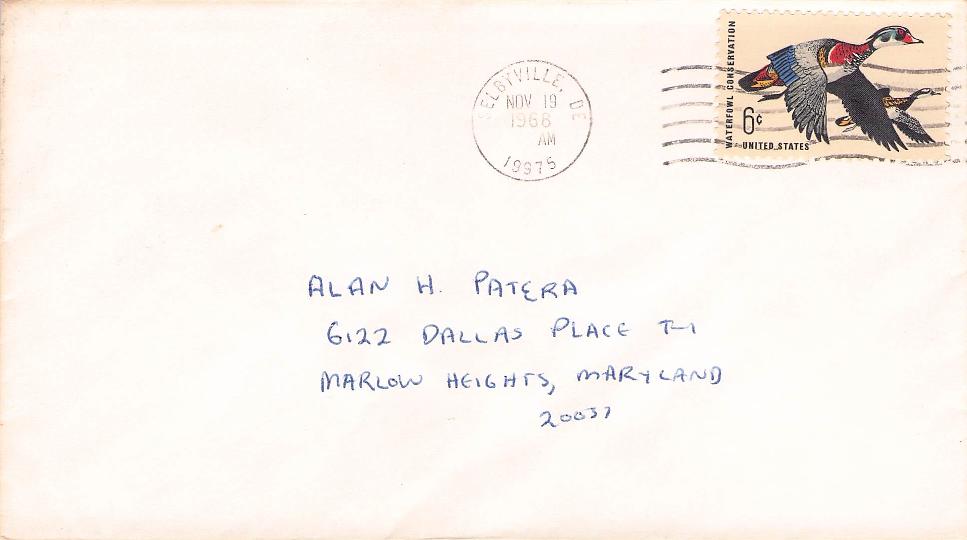 SELBYVILLE, DE
NOV 19
1968
AM
19975
WATERFOWL CONSERVATION
6¢
UNITED STATES
ALAN H. PATERA
6122 DALLAS PLACE T-1
MARLOW HEIGHTS, MARYLAND
20031